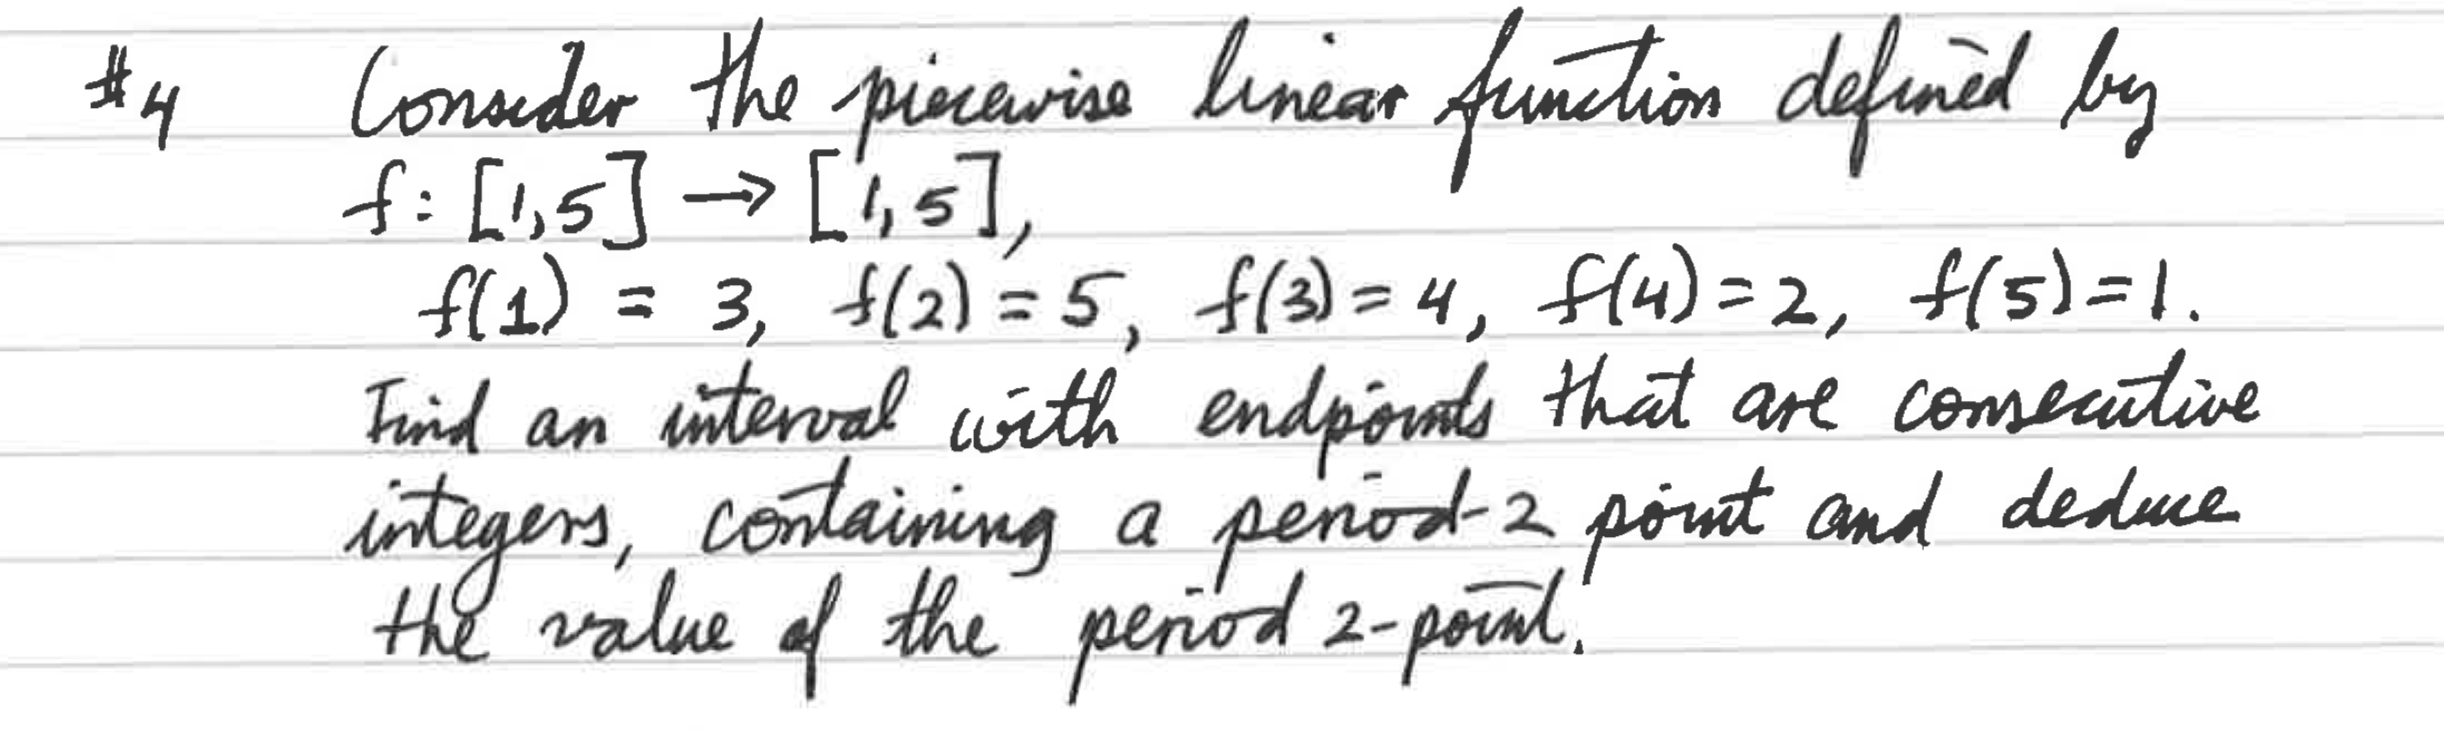 #4 Consider the piecewise linear function defined by
f: [1,5] → [1,5],
f(1) = 3, f(2) = 5, f(3) = 4, f(4) = 2, f(5) = 1.
Find an interval with endpoints that are consecutive
integers, containing a period-2 point and deduce
the value of the period 2-point.